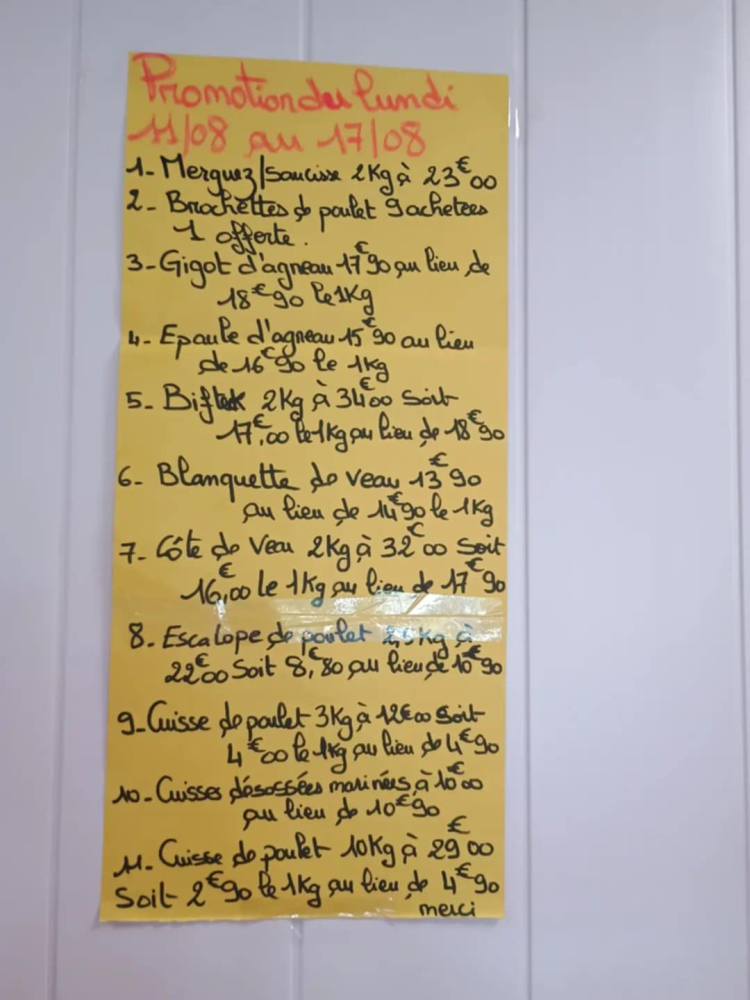 Promotion du lundi
11/08 au 17/08
1- Merguez/Saucisse 2Kg à 23€00
2- Brochettes de poulet 9 achetées
1 offerte.
3- Gigot d'agneau 17€90 au lieu de
18€90 le 1Kg
4- Epaule d'agneau 15€90 au lieu
de 16€90 le 1Kg
5- Biftek 2Kg à 34€00 soit
17€,00 le 1kg au lieu de 18€90
6- Blanquette de veau 13€90
au lieu de 14€90 le 1Kg
7- Côte de Veau 2Kg à 32€00 soit
16€,00 le 1Kg au lieu de 17€90
8- Escalope de poulet 2,5Kg à
22€00 soit 8,€80 au lieu de 10€90
9- Cuisse de poulet 3Kg à 12€00 soit
4€00 le 1kg au lieu de 4€90
10- Cuisses désossées marinées à 10€00
au lieu de 10€90
11- Cuisse de poulet 10Kg à 29€00
Soit 2€90 le 1Kg au lieu de 4€90
merci